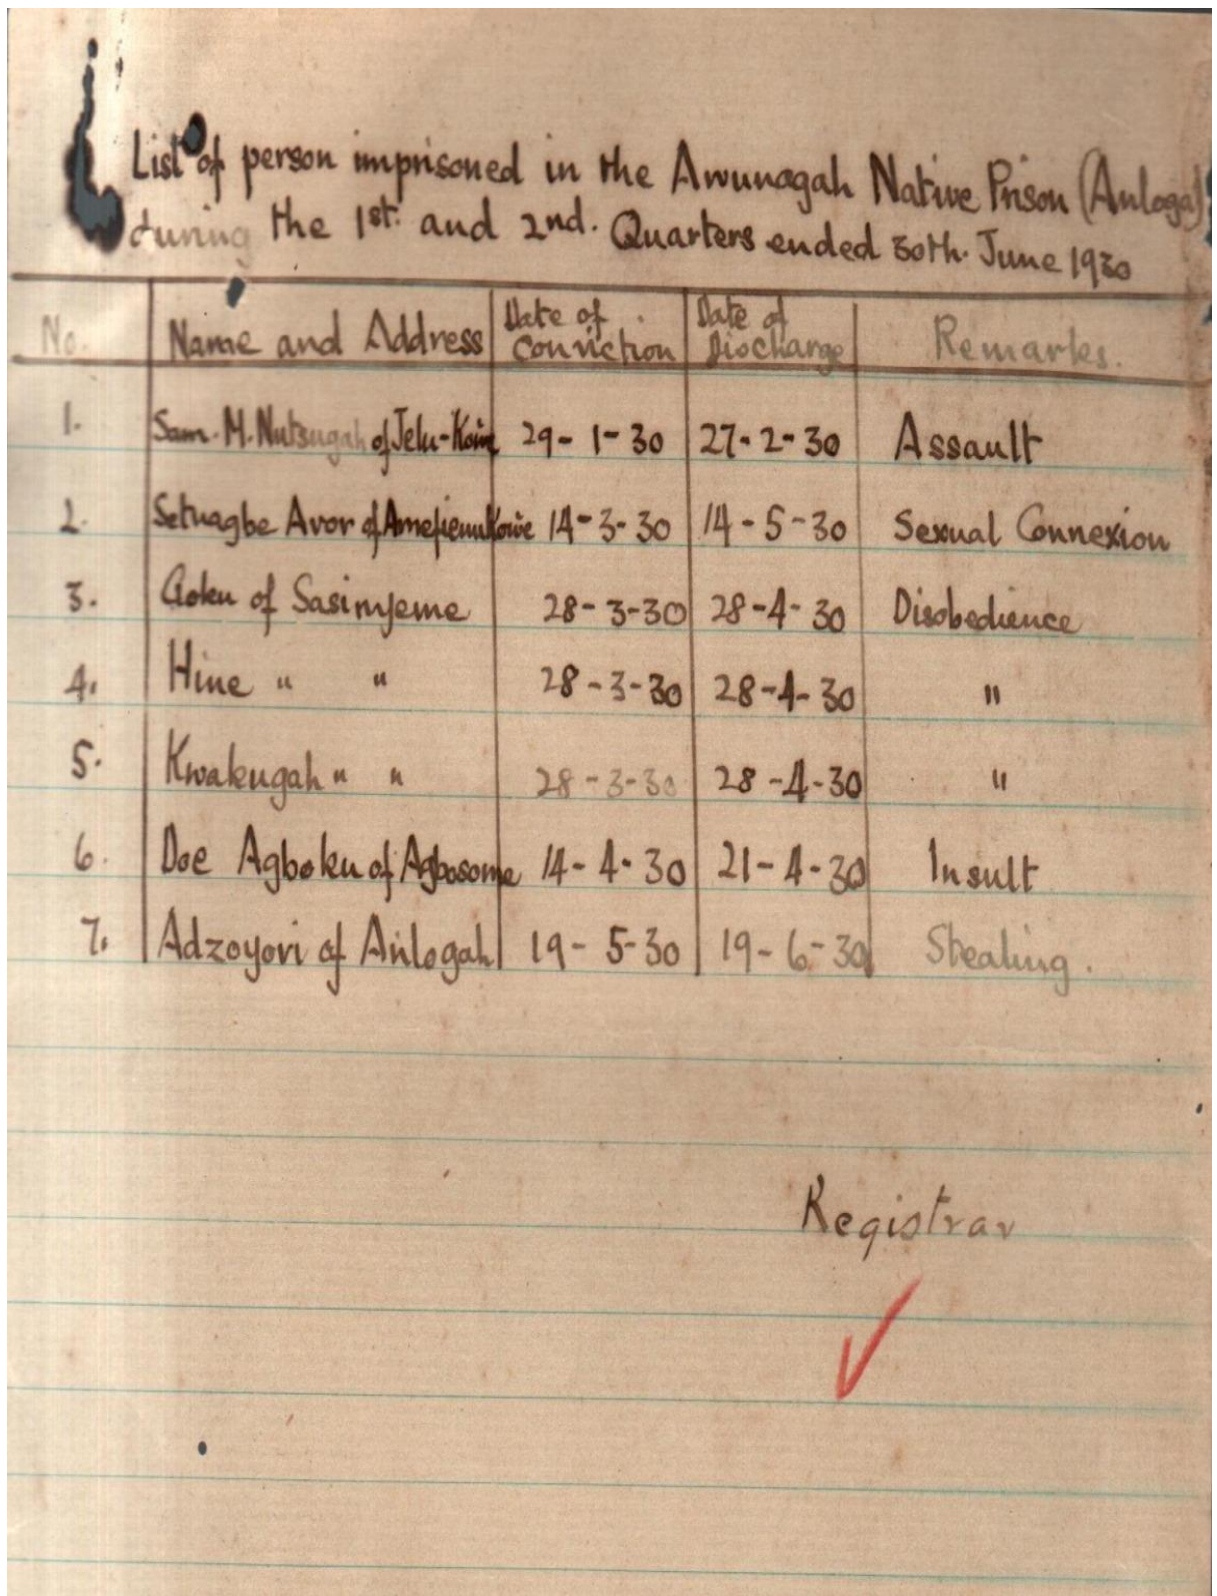 List of person imprisoned in the Awunagah Native Prison (Anloga)
during the 1st. and 2nd. Quarters ended 30th. June 1930
No. Name and Address Date of Conviction Date of Discharge Remarks.
1. Sam. M. Nutsugah of Jelu-Koŵe 29-1-30 27-2-30 Assault
2. Setuagbe Avor of 14-3-30 14-5-30 Sexual Connexion
3. of Sasimyeme 28-3-30 28-4-30 Disobedience
4. Hine " " 28-3-30 28-4-30 "
5. Kwakugah " " 28-3-30 28-4-30 "
6. Doe Agboku of Agbosome 14-4-30 21-4-30 Insult
7. Adzoyovi of Anlogah 19-5-30 19-6-30 Stealing.
Registrar